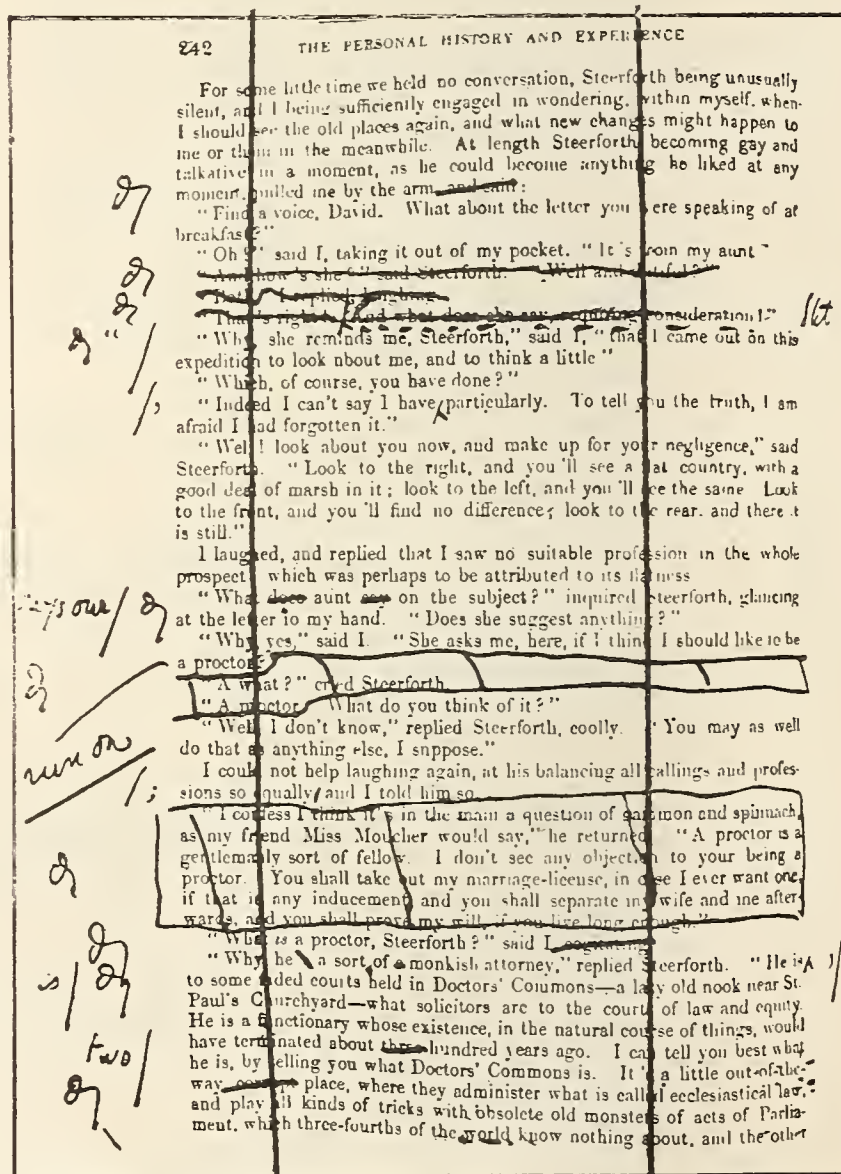 242 THE PERSONAL HISTORY AND EXPERIENCE
For some little time we held no conversation, Steerforth being unusually
silent, and I being sufficiently engaged in wondering, within myself, when
I should see the old places again, and what new changes might happen to
me or them in the meanwhile. At length Steerforth, becoming gay and
talkative in a moment, as he could become anything he liked at any
moment, pulled me by the arm, and said:
“Find a voice, David. What about the letter you were speaking of at
breakfast?”
“Oh!” said I, taking it out of my pocket. “It's from my aunt”
“And how's she?” said Steerforth. “Well and
I replied, laughing
“That's right! And what does she say, requiring consideration?”
“Why she reminds me, Steerforth,” said I, “that I came out on this
expedition to look about me, and to think a little”
“Which, of course, you have done?”
“Indeed I can't say I have particularly. To tell you the truth, I am
afraid I had forgotten it.”
“Well! look about you now, and make up for your negligence,” said
Steerforth. “Look to the right, and you'll see a flat country, with a
good deal of marsh in it; look to the left, and you'll see the same Look
to the front, and you'll find no difference; look to the rear, and there it
is still.”
I laughed, and replied that I saw no suitable profession in the whole
prospect; which was perhaps to be attributed to its flatness
“What does aunt say on the subject?” inquired Steerforth, glancing
at the letter in my hand. “Does she suggest anything?”
“Why yes,” said I. “She asks me, here, if I think I should like to be
a proctor?
“A what?” cried Steerforth.
“A proctor. What do you think of it?”
run on
“Well, I don't know,” replied Steerforth, coolly. “You may as well
do that as anything else, I suppose.”
I could not help laughing again, at his balancing all callings and profes-
sions so equally; and I told him so
“I confess I think it's in the main a question of gammon and spinnach,
as my friend Miss Moucher would say,” he returned. “A proctor is a
gentlemanly sort of fellow. I don't see any objection to your being a
proctor. You shall take out my marriage-license, in case I ever want one
if that is any inducement; and you shall separate my wife and me after
wards, and you shall prove my will, if you live long enough.”
“What is a proctor, Steerforth?” said I, cogitating.
“Why, he a sort of a monkish attorney,” replied Steerforth. “He is
is
to some faded courts held in Doctors' Commons—a lazy old nook near St.
Paul's Churchyard—what solicitors are to the courts of law and equity.
He is a functionary whose existence, in the natural course of things, would
have terminated about three hundred years ago. I can tell you best what
two
he is, by telling you what Doctors' Commons is. It's a little out-of-the-
way, place, where they administer what is called ecclesiastical law,
and play all kinds of tricks with obsolete old monsters of acts of Parlia-
ment, which three-fourths of the world know nothing about, and the other